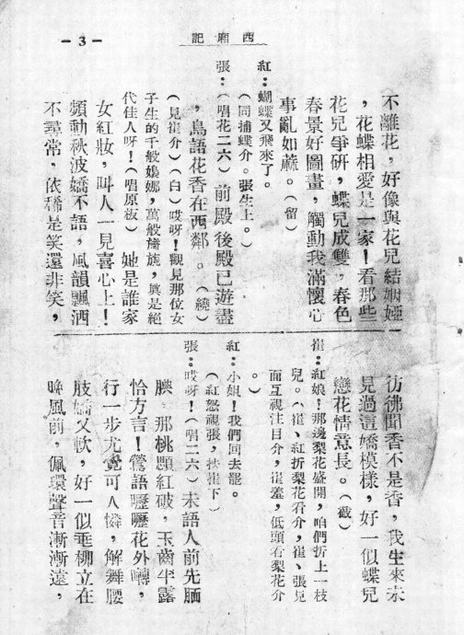 西廂記
- 3 -
不離花，好像與花兒結姻婭
，花蝶相愛是一家！看那些
花兒爭妍，蝶兒成雙，春色
春景好圖畫，觸動我滿懷心
事亂如蔴。（留）
紅：蝴蝶又飛來了。
（同捕蝶介。張生上。）
張：（唱花二六）前殿後殿已遊盡
，鳥語花香在西鄰。（繞）
（見崔介）（白）哎呀！觀見那位女
子生的千般嬝娜，萬般旖旎，眞是絕
代佳人呀！（唱原板）她是誰家
女紅妝，叫人一見喜心上！
頻動秋波嬌不語，風韻飄洒
不尋常，依稀是笑還非笑，
彷彿聞香不是香，我生來未
見過這嬌模樣，好一似蝶兒
戀花情意長。（截）
崔：紅娘！那邊梨花盛開，咱們折上一枝
兒。（崔、紅折梨花看介，崔、張見
面互視注目介，崔羞，低頭看梨花介
。）
紅：小姐！我們回去罷。
（紅怒視張，扶崔下）
張：哎呀！（唱二六）未語人前先腼
腆，那桃顆紅破，玉齒半露
恰方言！鶯語嚦嚦花外囀，
行一步尤覺可人憐，解舞腰
肢嬌又軟，好一似垂柳立在
晚風前，佩環聲音漸漸遠，